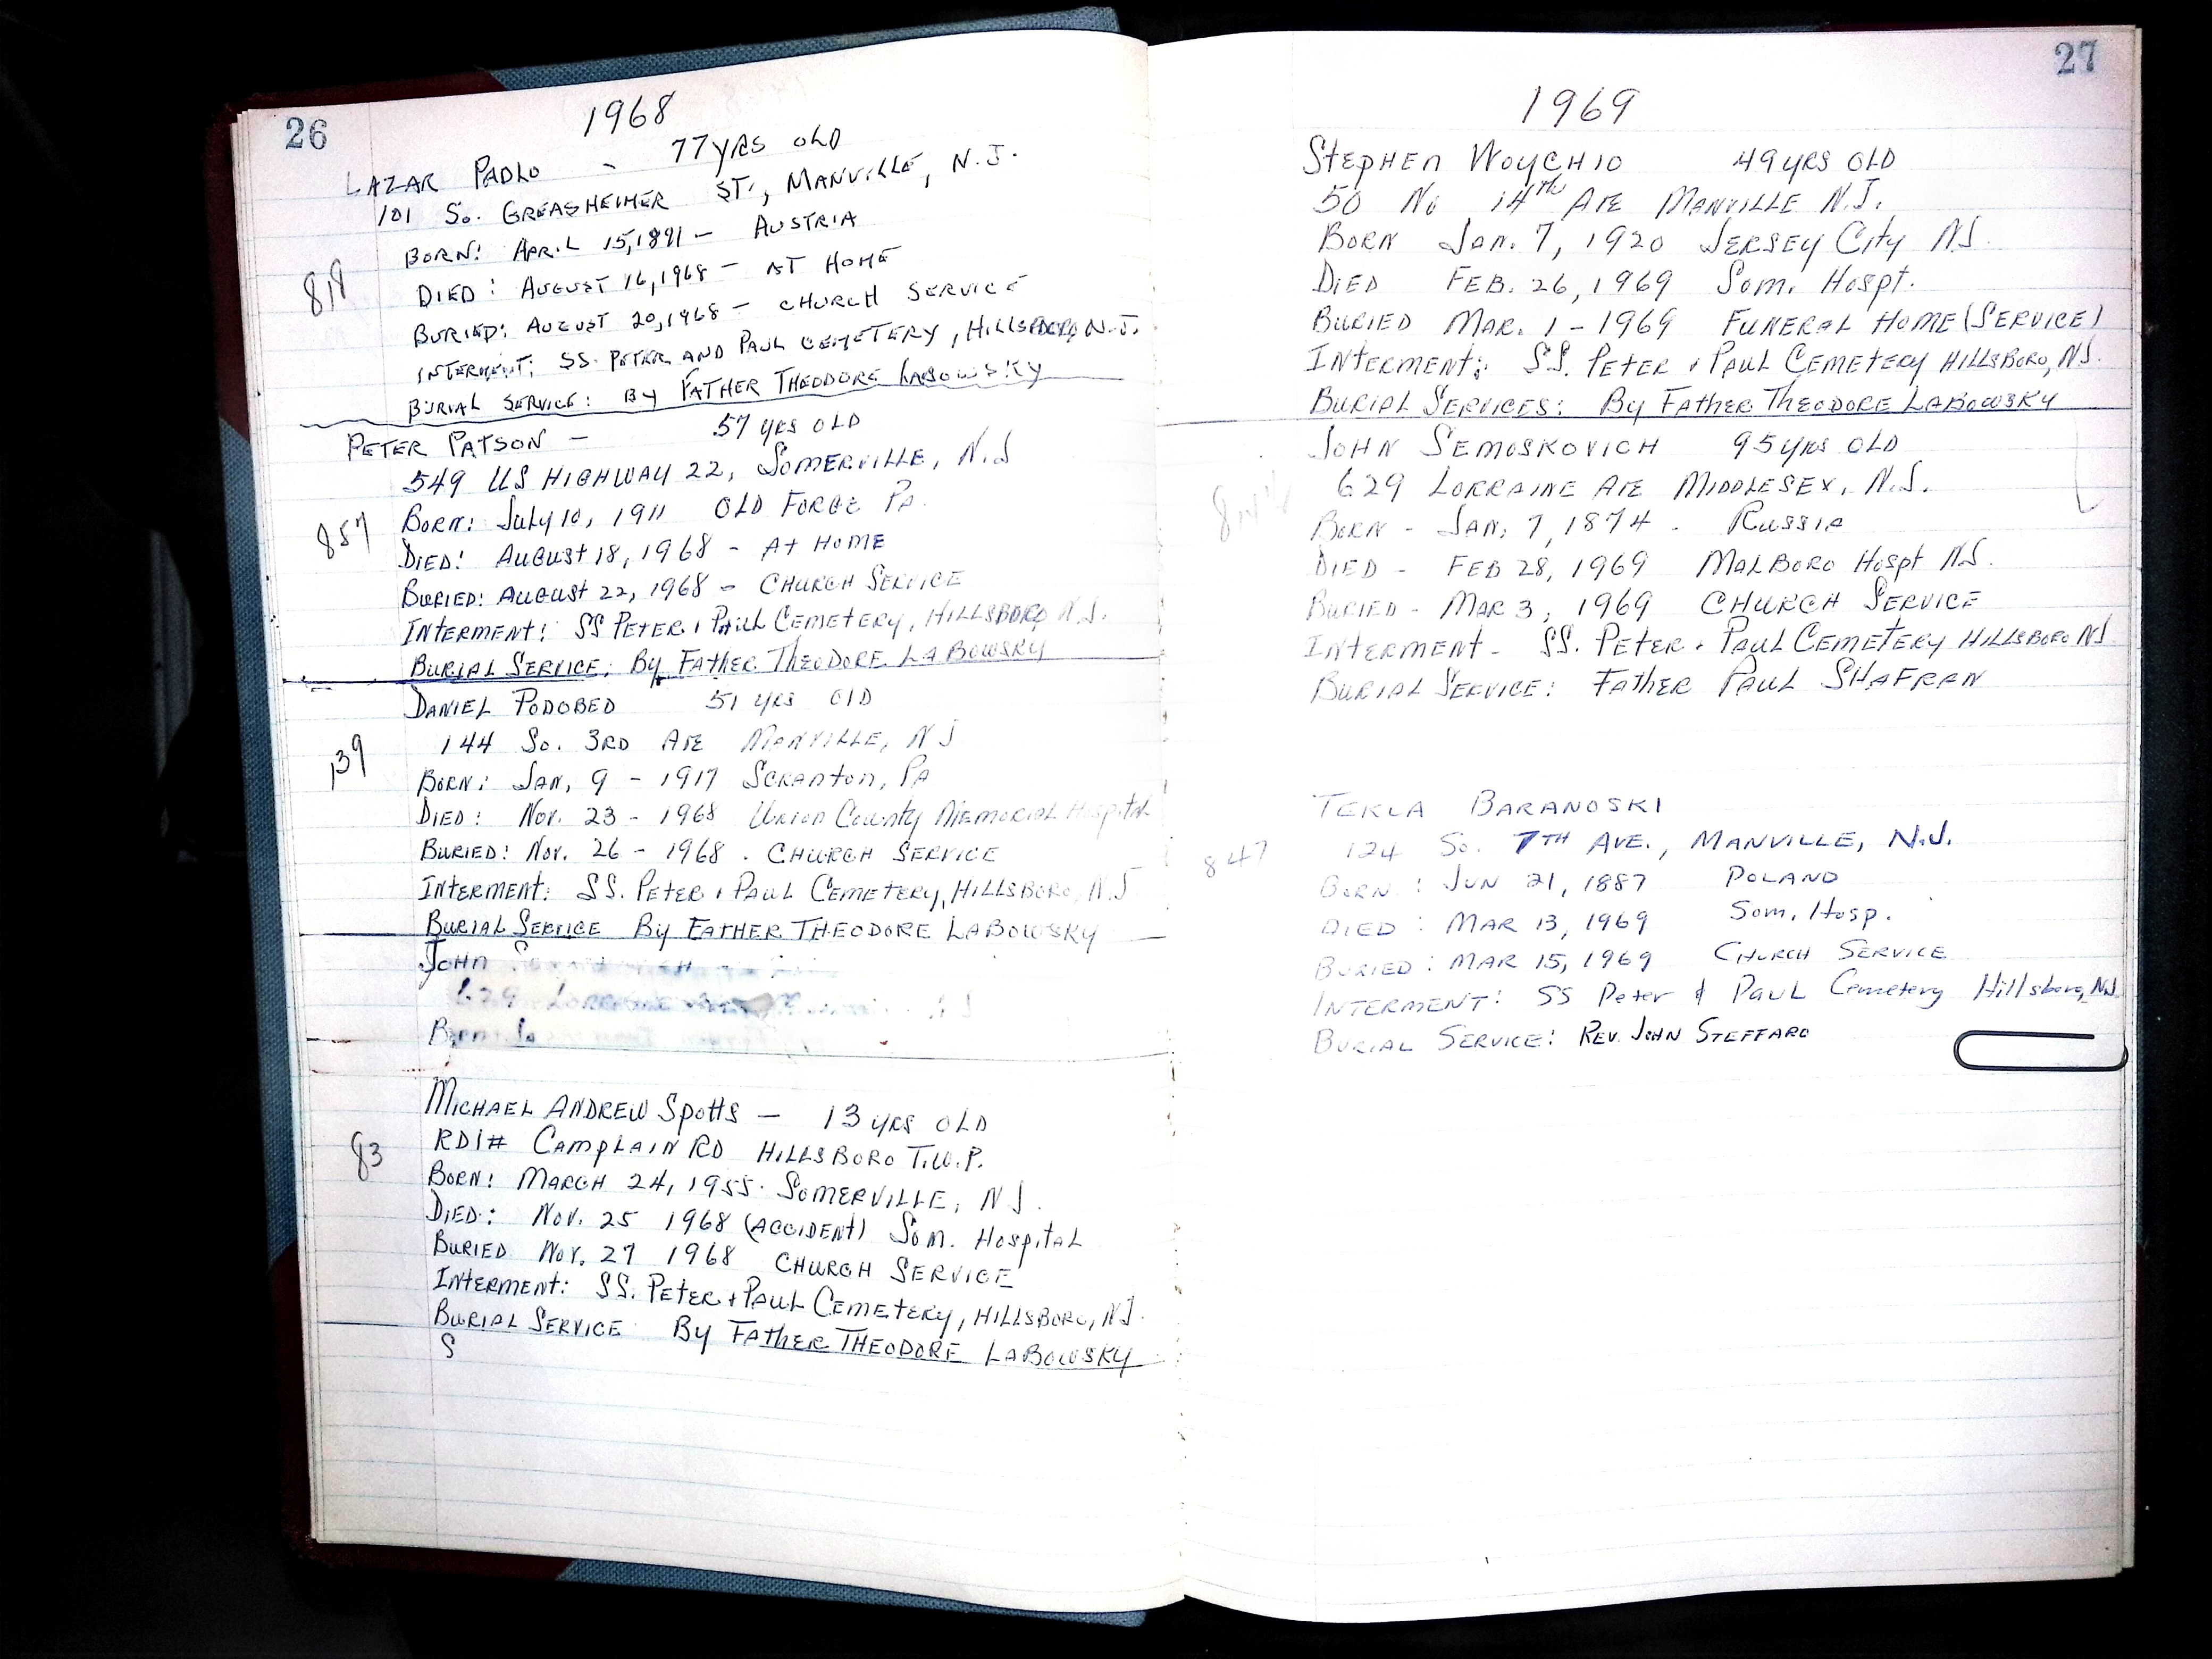 26
1968
LAZAR PADLO - 77 YRS OLD
101 SO. GREASHEIMER ST., MANVILLE, N.J.
BORN: APRIL 15, 1891 - AUSTRIA
818
DIED: AUGUST 16, 1968 - AT HOME
BURIED: AUGUST 20, 1968 - CHURCH SERVICE
INTERMENT: SS. PETER AND PAUL CEMETERY, HILLSBORO, N.J.
BURIAL SERVICE: BY FATHER THEODORE LABOWSKY
PETER PATSON - 57 YRS OLD
549 US HIGHWAY 22, SOMERVILLE, N.J
857
BORN: JULY 10, 1911 OLD FORGE PA.
DIED: AUGUST 18, 1968 - At HOME
BURIED: AUGUST 22, 1968 - CHURCH SERVICE
INTERMENT: SS PETER & PAUL CEMETERY, HILLSBORO, N.J.
BURIAL SERVICE: BY FATHER THEODORE LABOWSKY
DANIEL PODOBED 51 YRS OLD
139
144 SO. 3RD AVE MANVILLE, NJ
BORN: JAN, 9 - 1917 SCRANTON, PA
DIED: NOV. 23 - 1968 UNION COUNTY MEMORIAL HOSPITAL
BURIED: NOV. 26 - 1968. CHURCH SERVICE
INTERMENT: SS. PETER & PAUL CEMETERY, HILLSBORO, N.J
BURIAL SERVICE BY FATHER THEODORE LABOWSKY
JOHN
629
MICHAEL ANDREW SPOTTS - 13 YRS OLD
83
RD1# CAMPLAIN RD HILLSBORO T.W.P.
BORN: MARCH 24, 1955. SOMERVILLE, NJ.
DIED: NOV. 25 1968 (ACCIDENT) SOM. HOSPITAL
BURIED NOV. 27 1968 CHURCH SERVICE
INTERMENT: SS. PETER & PAUL CEMETERY, HILLSBORO, NJ.
BURIAL SERVICE BY FATHER THEODORE LABOWSKY
S
27
1969
STEPHEN WOYCHIO 49 YRS OLD
50 NO 14TH AVE MANVILLE N.J.
BORN JAN. 7, 1920 JERSEY CITY NJ.
DIED FEB. 26, 1969 SOM. HOSPT.
BURIED MAR. 1 - 1969 FUNERAL HOME (SERVICE)
INTERMENT: SS. PETER & PAUL CEMETERY HILLSBORO, NJ.
BURIAL SERVICES: BY FATHER THEODORE LABOWSKY
JOHN SEMOSKOVICH 95 YRS OLD
629 LORRAINE AVE MIDDLESEX, N.J.
BORN - JAN. 7, 1874. RUSSIA
DIED - FEB 28, 1969 MALBORO HOSPT NJ.
BURIED - MAR 3, 1969 CHURCH SERVICE
INTERMENT - SS. PETER & PAUL CEMETERY HILLSBORO NJ
BURIAL SERVICE: FATHER PAUL SHAFRAN
TEKLA BARANOSKI
847
124 So. 7TH AVE., MANVILLE, N.J.
BORN: JUN 21, 1887 POLAND
DIED: MAR 13, 1969 Som. Hosp.
BURIED: MAR 15, 1969 CHURCH SERVICE
INTERMENT: SS Peter & PAUL Cemetery Hillsboro, NJ.
BURIAL SERVICE: REV. JOHN STEFFARO